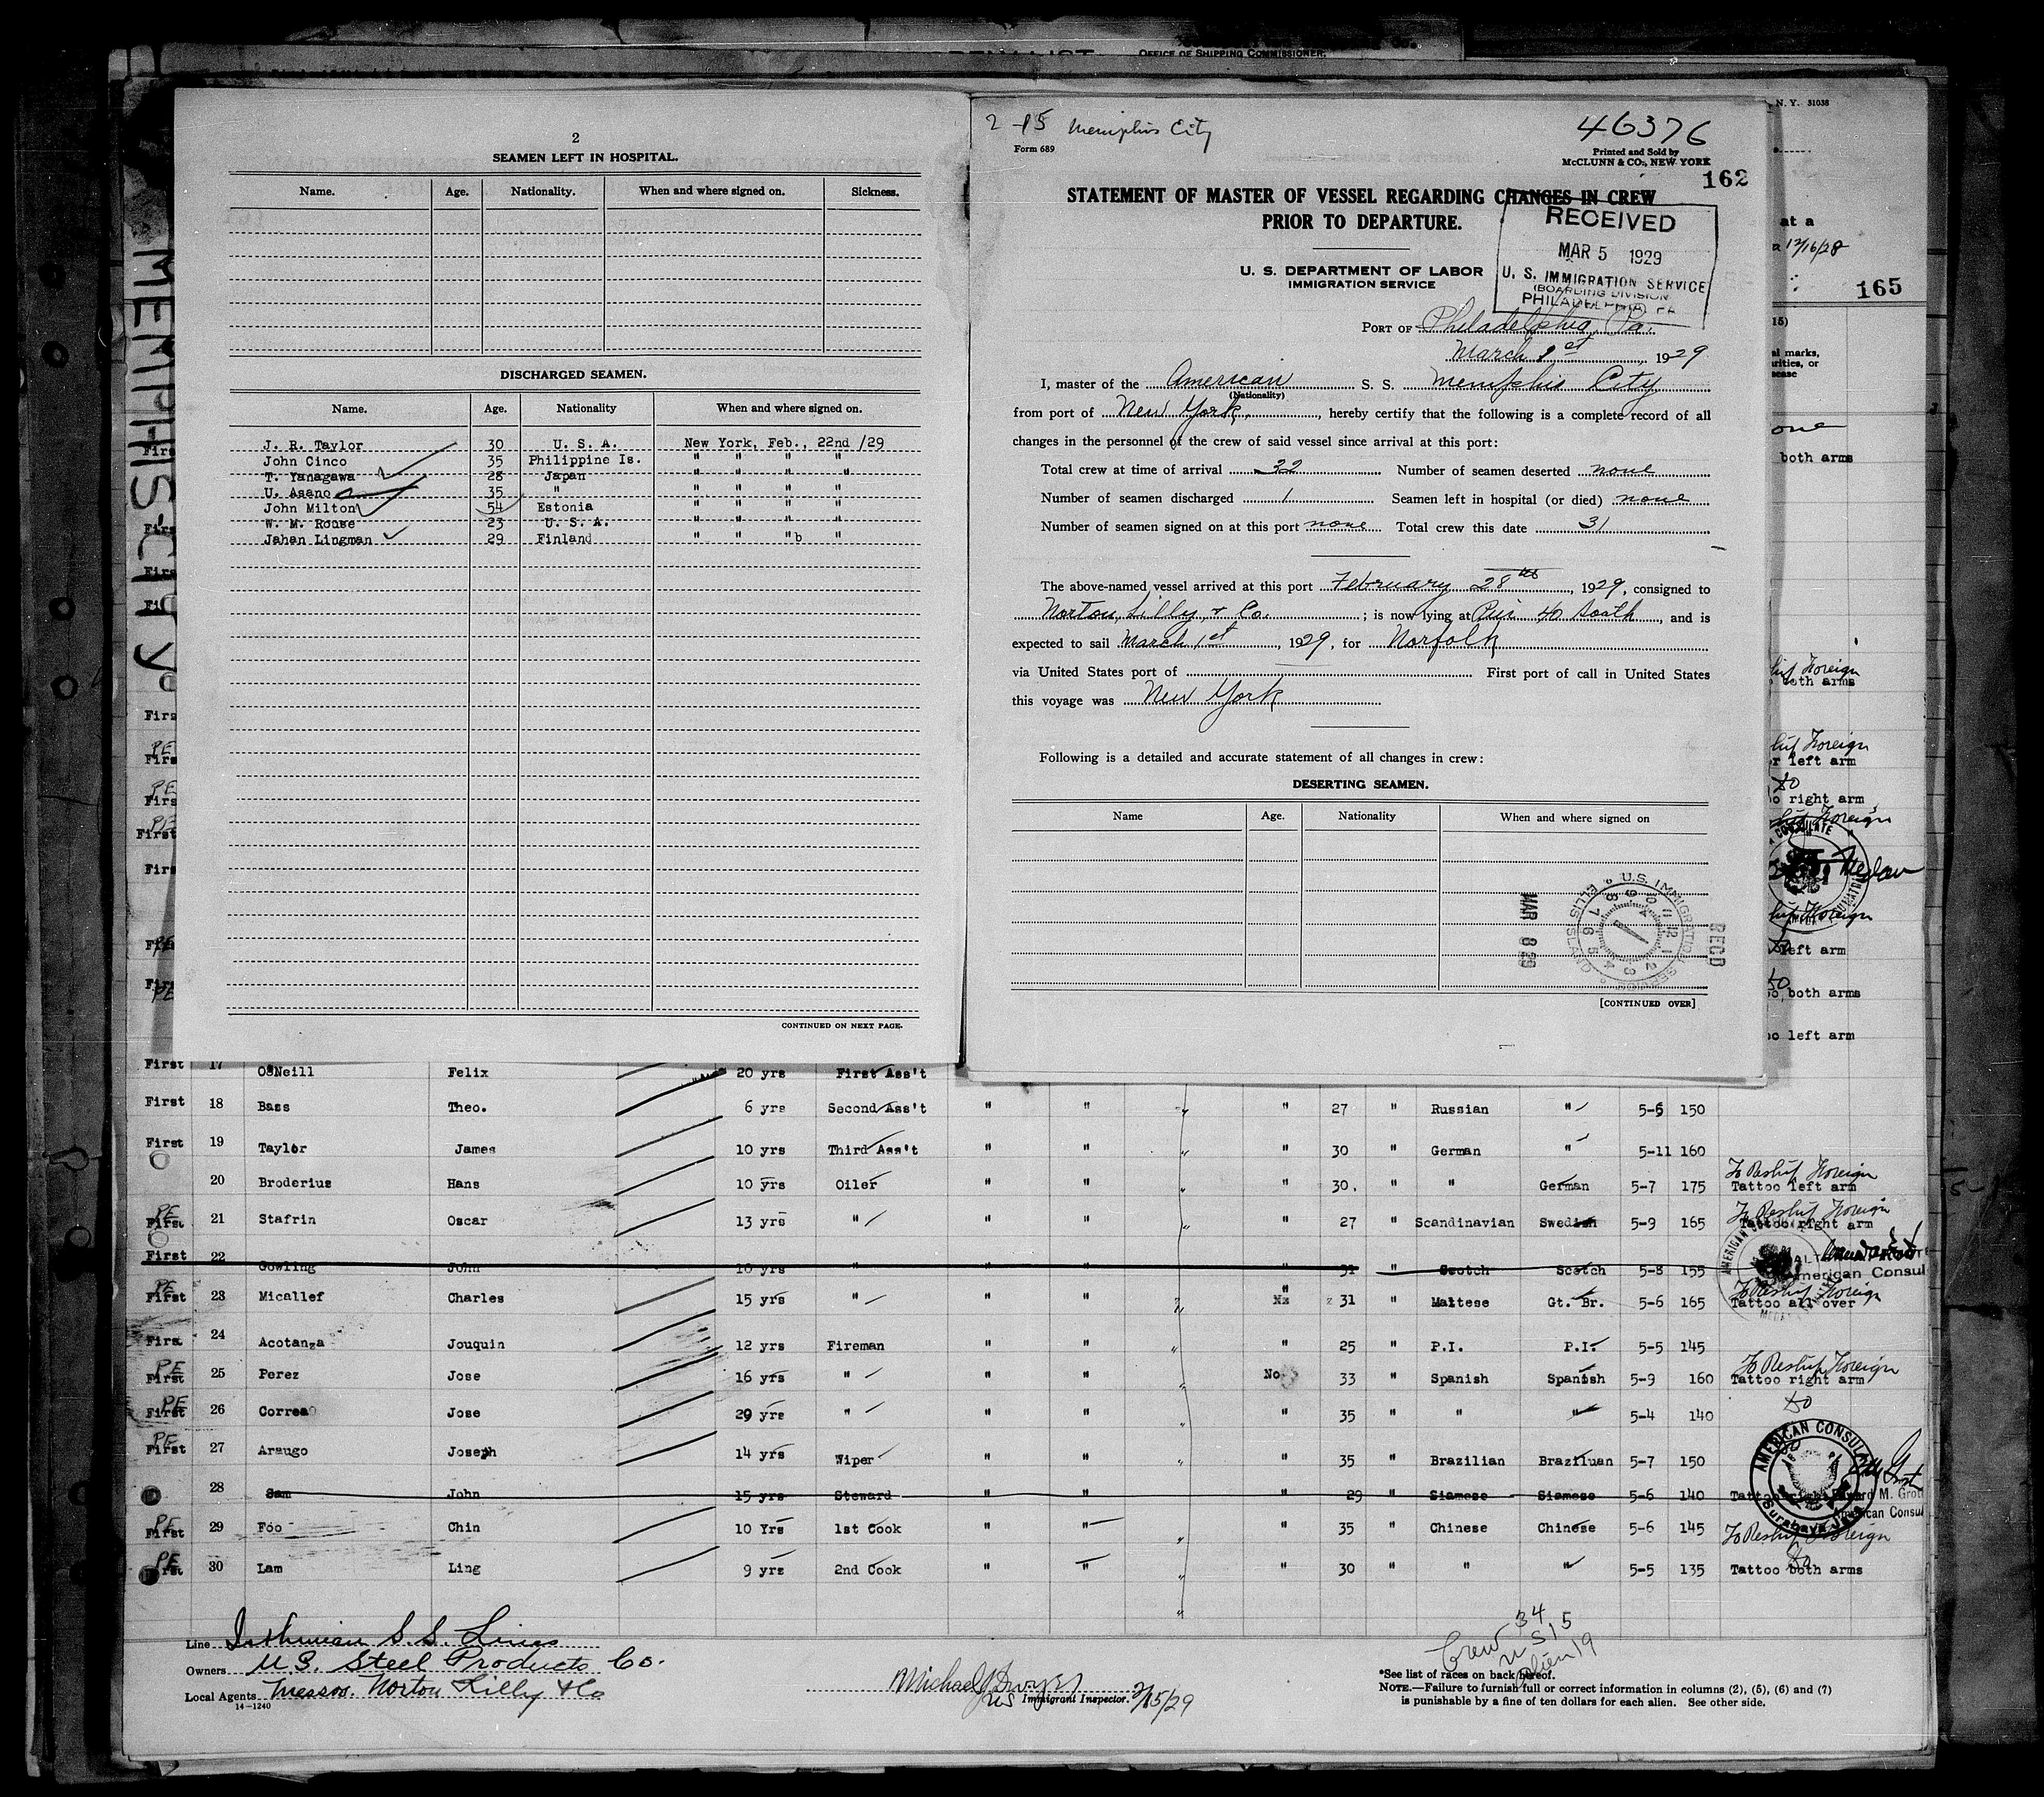 OFFICE OF SHIPPING COMMISSIONER.
MEMPHIS-CITY
2
SEAMEN LEFT IN HOSPITAL.
Name. Age. Nationality. When and where signed on. Sickness.
DISCHARGED SEAMEN.
Name. Age. Nationality When and where signed on.
J. R. Taylor 30 U. S. A. New York, Feb., 22nd /29
John Cinco 35 Philippine Is. " " " "
T. Yanagawa 28 Japan " " " "
U. Asano 35 " " " " "
John Milton 54 Estonia " " " "
W. M. Rouse 23 U. S. A. " " " "
Jahan Lingman 29 Finland " " "b "
CONTINUED ON NEXT PAGE.
2-15 Memphis City
46376
Form 689
Printed and Sold by
McCLUNN & CO., NEW YORK
162
STATEMENT OF MASTER OF VESSEL REGARDING CHANGES IN CREW
PRIOR TO DEPARTURE.
RECEIVED
MAR 5 1929
U. S. IMMIGRATION SERVICE
(BOARDING DIVISION
PHILADELPHIA, PA
U. S. DEPARTMENT OF LABOR
IMMIGRATION SERVICE
PORT OF Philadelphia, Pa.
March 1st, 1929
I, master of the American S. S. Memphis City
(Nationality)
from port of New York, hereby certify that the following is a complete record of all
changes in the personnel of the crew of said vessel since arrival at this port:
Total crew at time of arrival 32 Number of seamen deserted none
Number of seamen discharged 1 Seamen left in hospital (or died) none
Number of seamen signed on at this port none Total crew this date 31
The above-named vessel arrived at this port February 28th, 1929, consigned to
Norton, Lilly, & Co.; is now lying at Pier 40 South, and is
expected to sail March 1st, 1929, for Norfolk
via United States port of First port of call in United States
this voyage was New York
Following is a detailed and accurate statement of all changes in crew:
DESERTING SEAMEN.
Name Age. Nationality When and where signed on
U.S. IMMIGRATION SERVICE
ELLIS ISLAND
RECD
MAR 8 29
[CONTINUED OVER]
N. Y. 31038
at a
12/16/28
165
both arms
both arms
left arm
right arm
left arm
both arms
left arm
First 17 O'Neill Felix 20 yrs First Ass't
First 18 Bass Theo. 6 yrs Second Ass't " " " " 27 " Russian " 5-6 150
First 19 Taylor James 10 yrs Third Ass't " " " " 30 " German " 5-11 160
20 Broderius Hans 10 yrs Oiler " " " " 30. " " German 5-7 175 To Reship Foreign Tattoo left arm
PE First 21 Stafrin Oscar 13 yrs " " " " " 27 " Scandinavian Swedish 5-9 165 To Reship Foreign Tattoo right arm
First 22 Gowling John 10 yrs " " " 31 " Scotch Scotch 5-8 155
American Consul
PE First 23 Micallef Charles 15 yrs " " " " No " 31 " Maltese Gt. Br. 5-6 165 To Reship Foreign Tattoo all over
Firs 24 Acotanza Jouquin 12 yrs Fireman " " " " 25 " P.I. P.I. 5-5 145
PE First 25 Perez Jose 16 yrs " " " " No 33 " Spanish Spanish 5-9 160 To Reship Foreign Tattoo right arm
PE First 26 Correa Jose 20 yrs " " " " " 35 " " " 5-4 140 do
PE First 27 Araugo Joseph 14 yrs Wiper " " " " 35 " Brazilian Braziluan 5-7 150 do
28 Sam John 15 yrs Steward " " " 29 " Siamese Siamese 5-6 140
AMERICAN CONSULATE
Surabaya Java
American Consul
PE First 29 Foo Chin 10 Yrs 1st Cook " " " " 35 " Chinese Chinese 5-6 145 To Reship Foreign
PE First 30 Lam Ling 9 yrs 2nd Cook " " " " 30 " " " 5-5 135 do Tattoo both arms
Line Isthmian S. S. Lines
Owners U.S. Steel Products Co.
Local Agents Messrs. Norton Lilly & Co
14-1240
Michael J Dwyer
US Immigrant Inspector. 2/15/29
Crew 34
US 15
Alien 19
*See list of races on back hereof.
NOTE.—Failure to furnish full or correct information in columns (2), (5), (6) and (7)
is punishable by a fine of ten dollars for each alien. See other side.